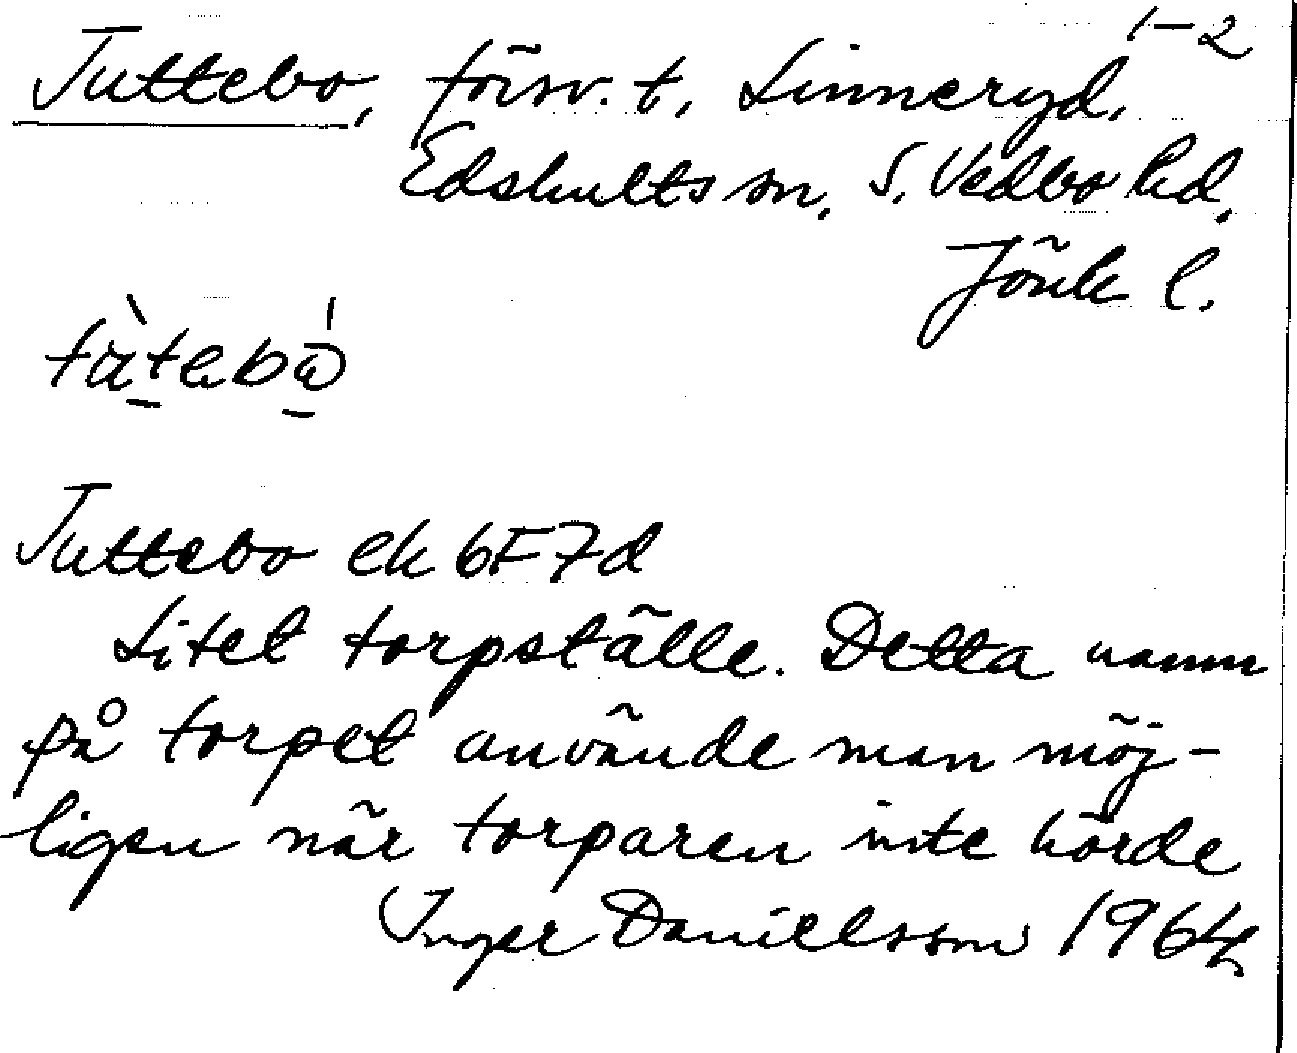 1-2
Tuttebo, försv. t. Linneryd,
Edshults sn, S. Vedbo hd,
Jönk l.
Tuttebo ek 6F7d
Litet torpställe. Detta namn
på torpet använde man möj-
ligen när torparen inte hörde
Inger Danielsson 1964